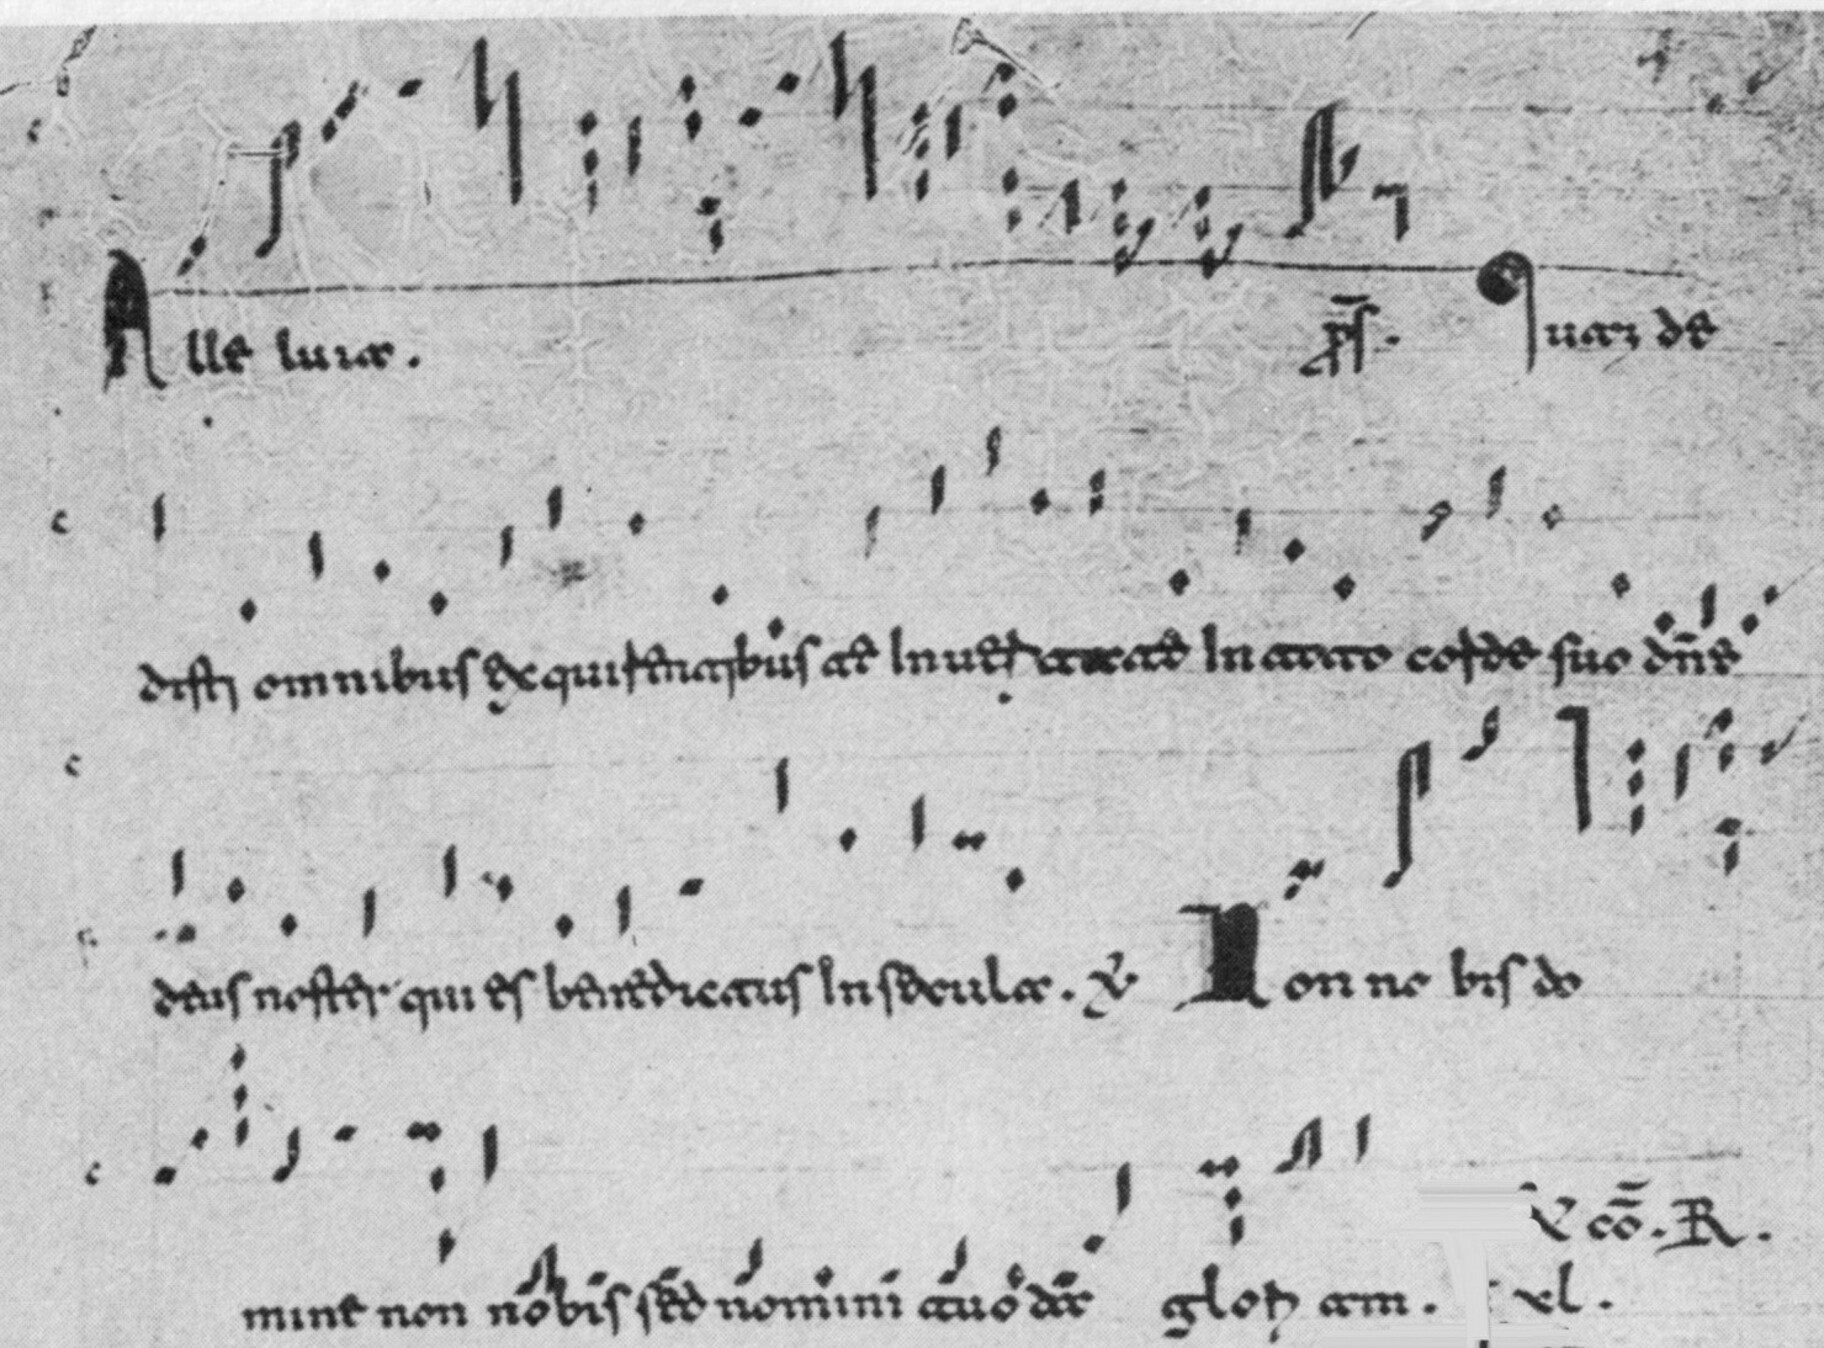 Alle luia. ps. Quaz de
disti omnibus exquirentibus te In ueritate In toto corde suo dne
deus noster qui es benedictus In secula. V Non no bis do
V co. R.
mine non nobis sed nomini tuo da glori am. xl.